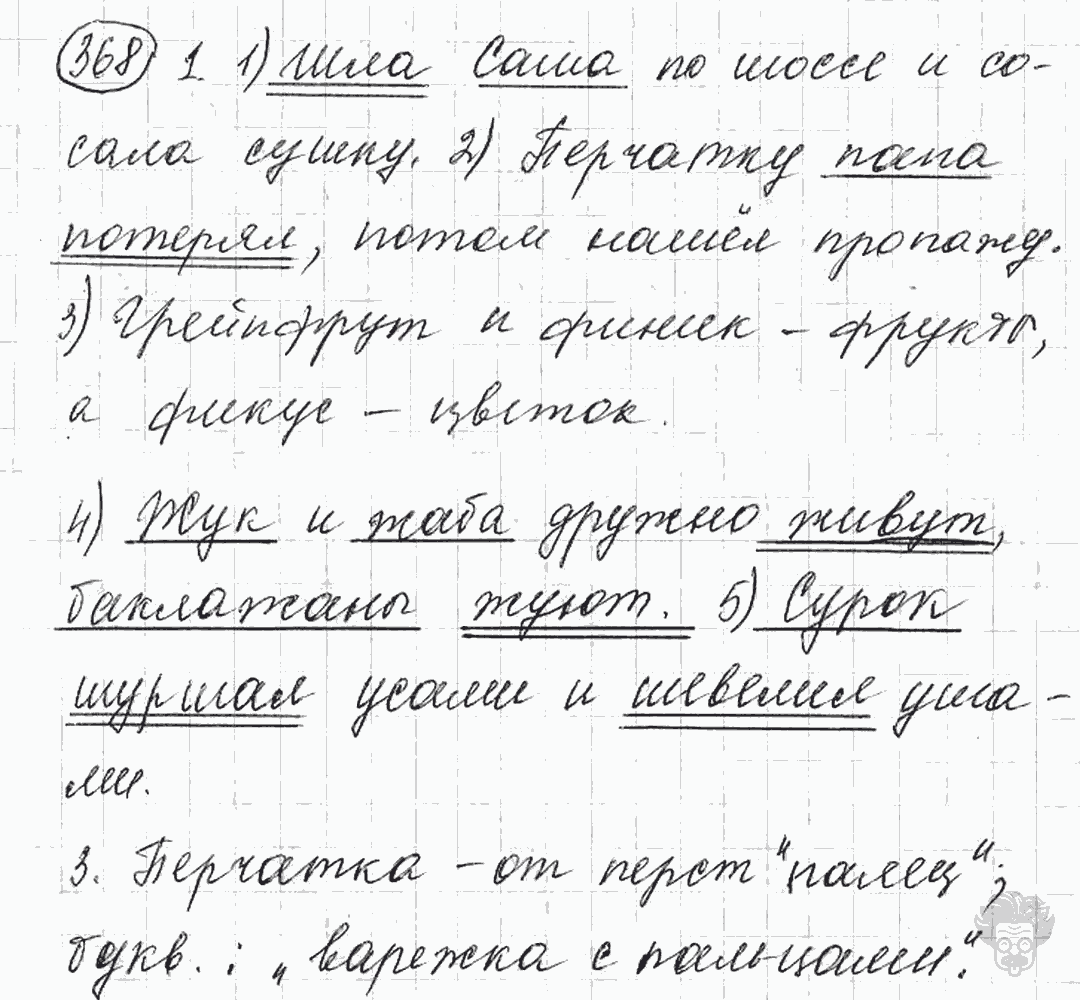 368 1. 1) Шла Саша по шоссе и со-
сала сушку. 2) Перчатку папа
потерял, потом нашёл пропажу.
3) Грейпфрут и финик – фрукты,
а фикус – цветок.
4) Жук и жаба дружно живут,
баклажаны жуют. 5) Сурок
шуршал усами и шевелил уша-
ми.
3. Перчатка – от перст "палец";
букв.: „варежка с пальцами".